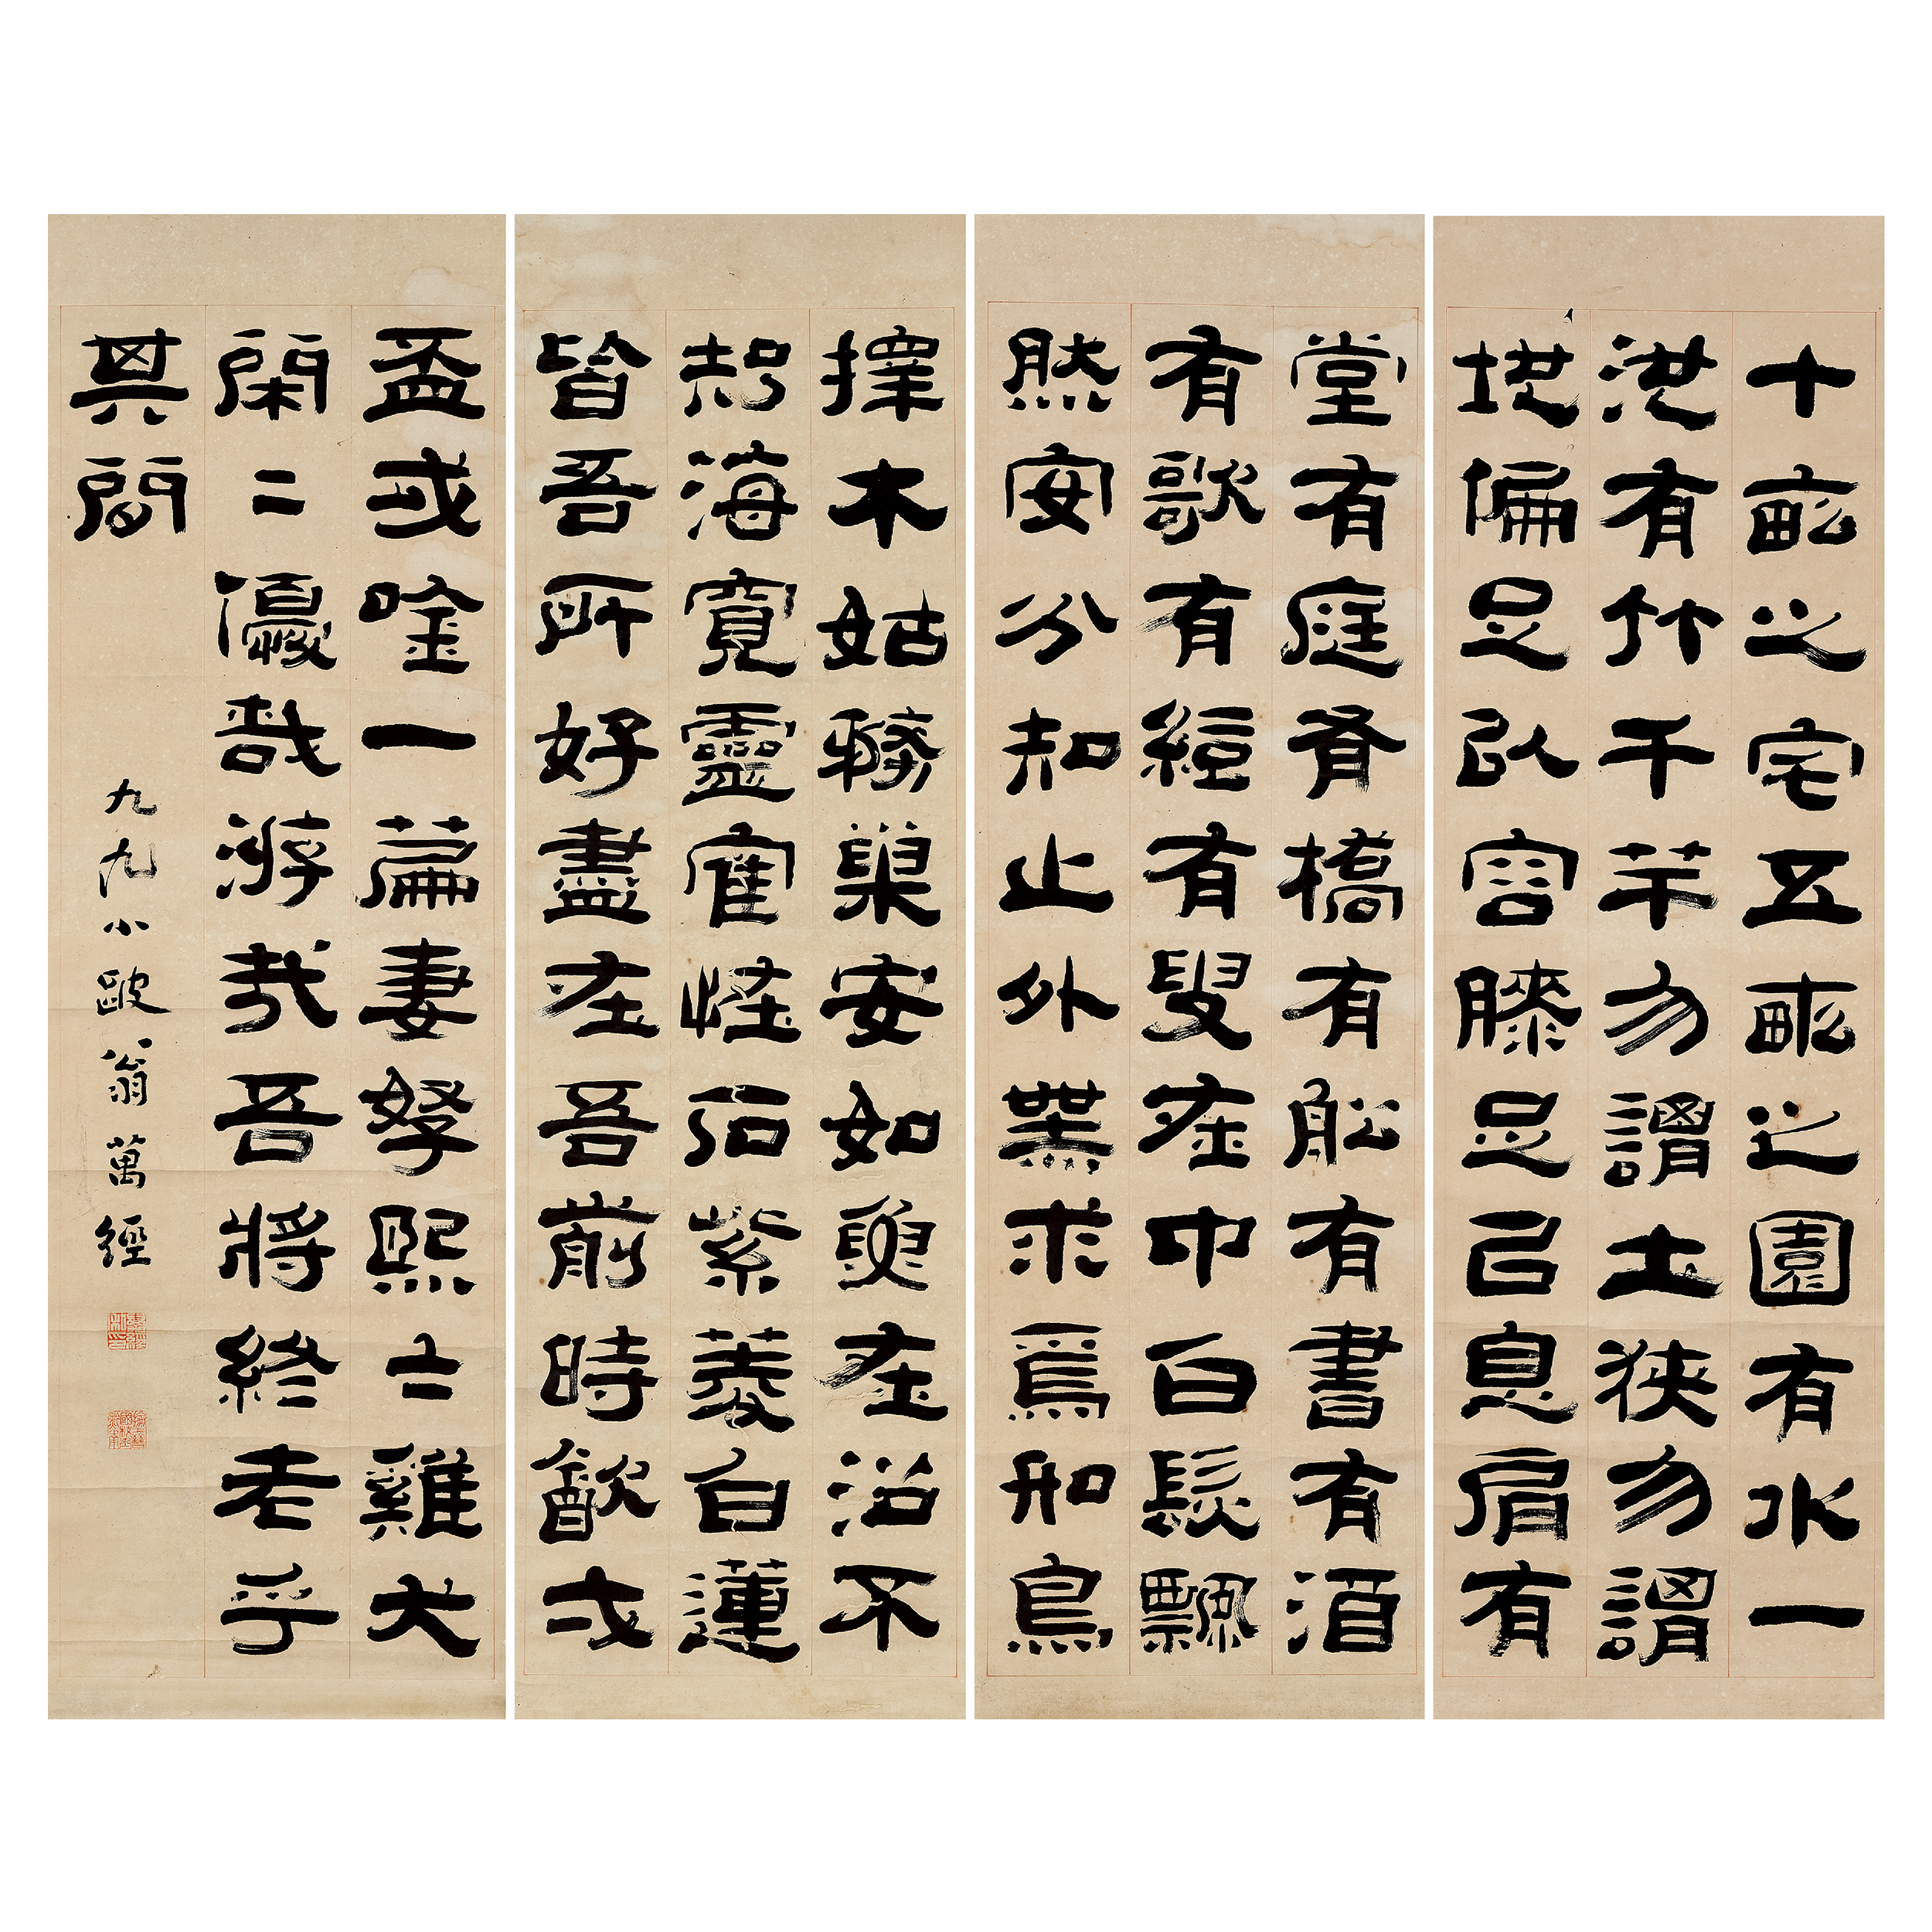 十畝之宅五畝之園有水一
池有竹千竿勿謂土狹勿謂
地偏足以容膝足㠯息肩有
堂有庭有橋有船有書有酒
有歌有絃有叟在中白鬚飄
然安分知止外無求焉如鳥
擇木姑務巢安如龜在沼不
知海寬靈寉怪石紫菱白蓮
皆吾所好盡在吾前時飲弌
盃或吟一篇妻孥熙々雞犬
閑々優哉游哉吾將終老乎
其間
九九小跛翁萬經